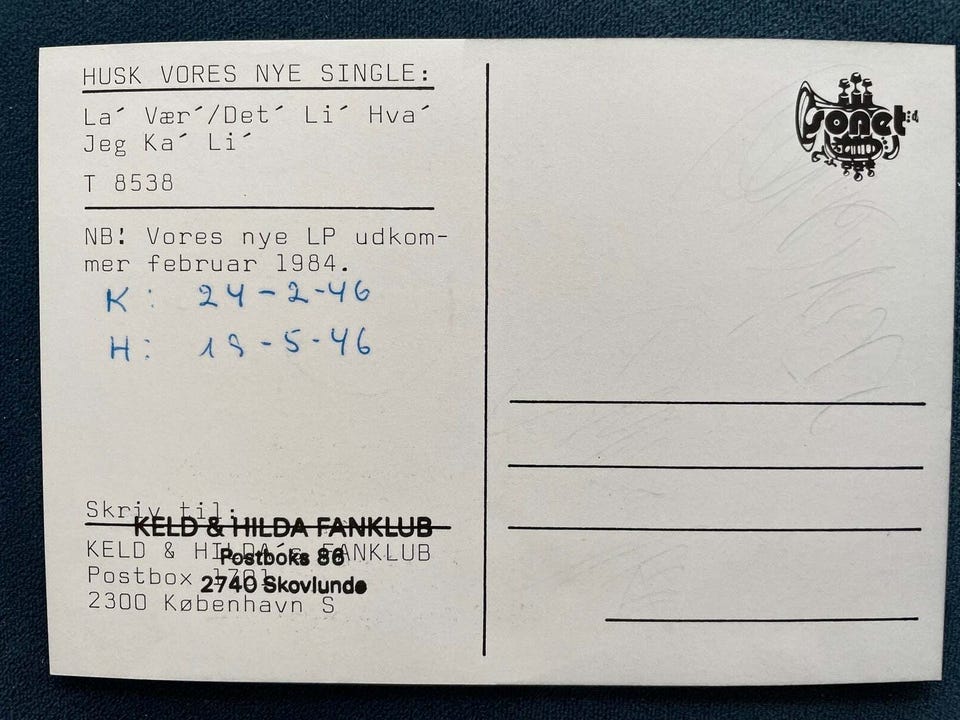 HUSK VORES NYE SINGLE:
La´ Vær´/Det´ Li´ Hva´
Jeg Ka´ Li´
T 8538
NB! Vores nye LP udkom-
mer februar 1984.
K: 24-2-46
H: 19-5-46
Skriv til:
KELD & HILDA FANKLUB
Postboks 86
2740 Skovlunde
KELD & HILDA´s FANKLUB
Postbox 1701
2300 København S
sonet